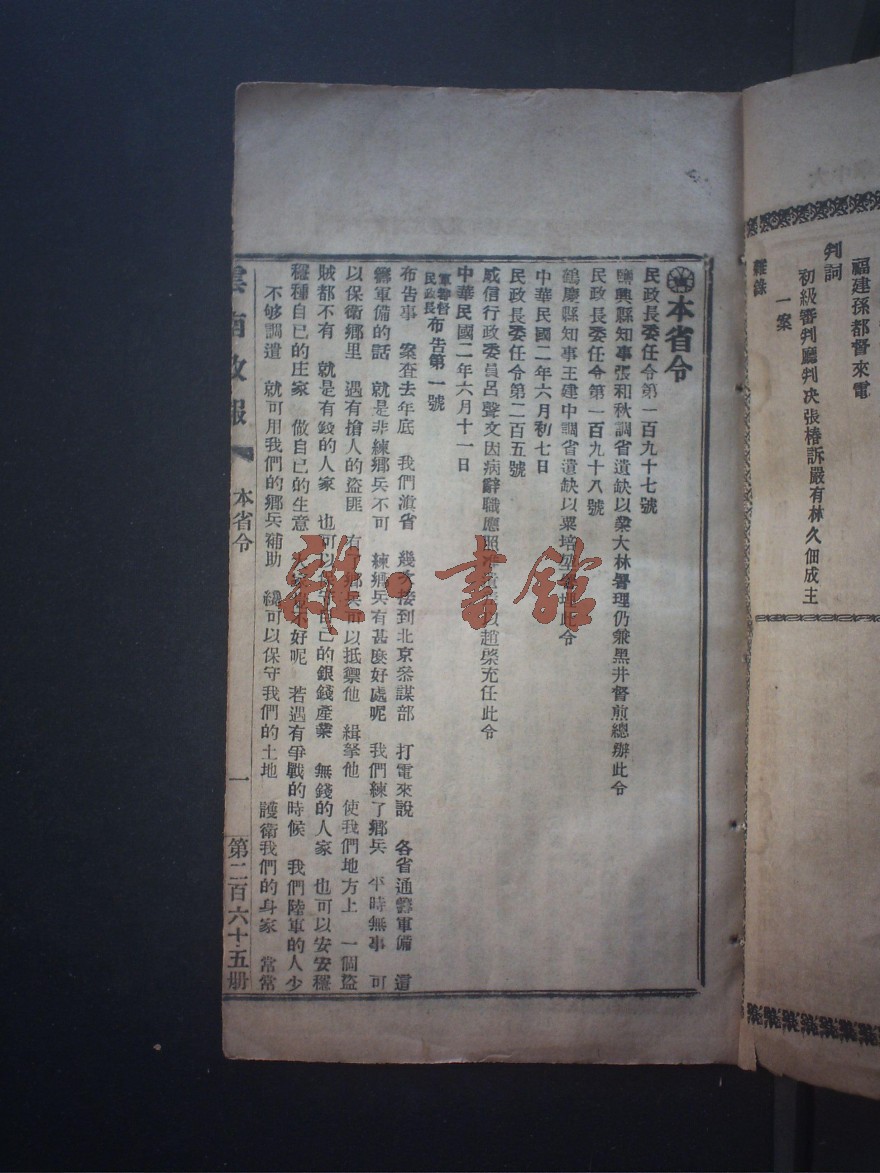 福建孫都督來電
判詞
初級審判廳判决張椿訴嚴有林久佃成主
一案
雜錄
本省令
民政長委任令第一百九十七號
鹽興縣知事張和秋調省遺缺以業大林署理仍兼黑井督煎總辦此令
民政長委任令第一百九十八號
鶴慶縣知事王建中調省遺缺以粟培堃署理此令
中華民國二年六月初七日
民政長委任令第二百五號
威信行政委員呂聲文因病辭職應照准遺缺以趙棨充任此令
中華民國二年六月十一日
軍都督
民政長
布告第一號
布告事　案查去年底　我們滇省　幾次接到北京叅謀部　打電來說　各省通籌軍備　這
籌軍備的話　就是非練鄉兵不可　練鄉兵有甚麼好處呢　我們練了鄉兵　平時無事　可
以保衛鄉里　遇有搶人的盜匪　有了鄉兵可以抵禦他　緝拏他　使我們地方上　一個盜
賊都不有　就是有錢的人家　也可以保守自己的銀錢產業　無錢的人家　也可以安安穩
穩種自己的庄家　做自己的生意　好呢　若遇有爭戰的時候　我們陸軍的人少
不够調遣　就可用我們的鄉兵補助　纔可以保守我們的土地　護衛我們的身家　常常
雲南政報
本省令
一
第二百六十五册
雜書館